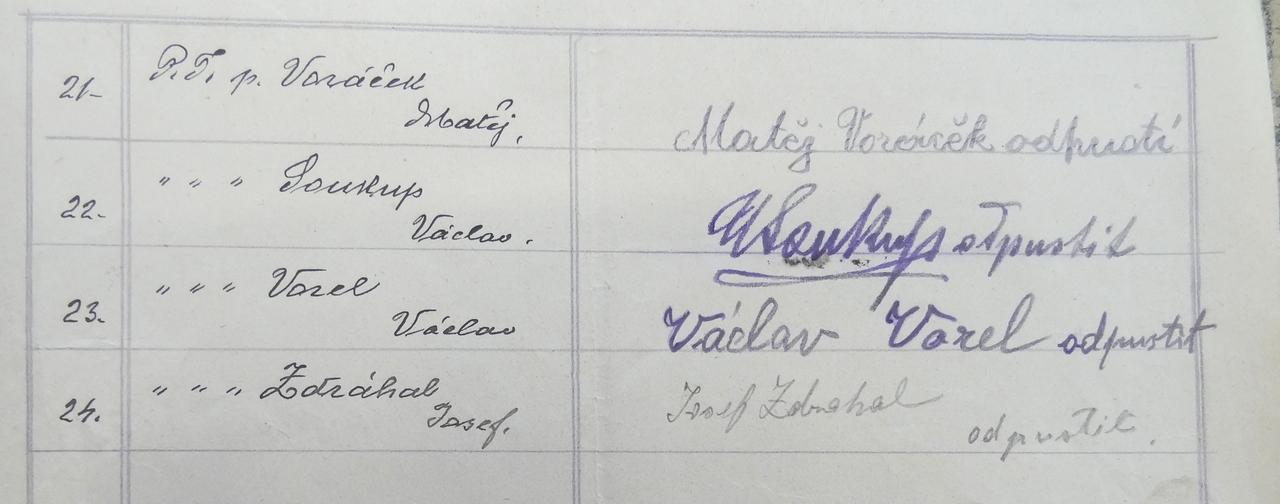 21- P.T. p. Voráček
Matěj.
Matěj Voráček odpustí
22.- " " " Soukup
Václav.
VSoukup odpustit
23. " " " Vorel
Václav
Václav Vorel odpustit
24. " " " Zdráhal
Josef.
Josef Zdrahal
odpustit.